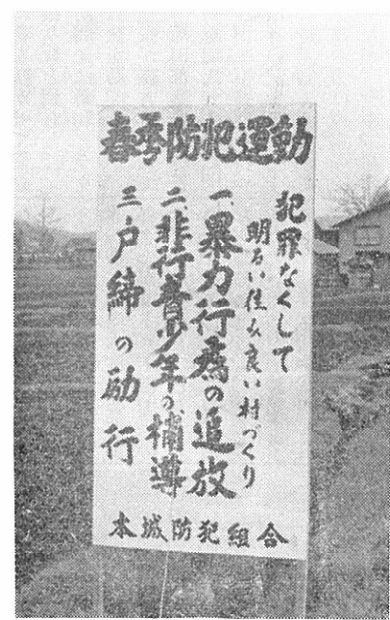 春季防犯運動
犯罪なくして
明るい住み良い村づくり
一 暴力行為の追放
二 非行青少年の補導
三 戸締の励行
本城防犯組合